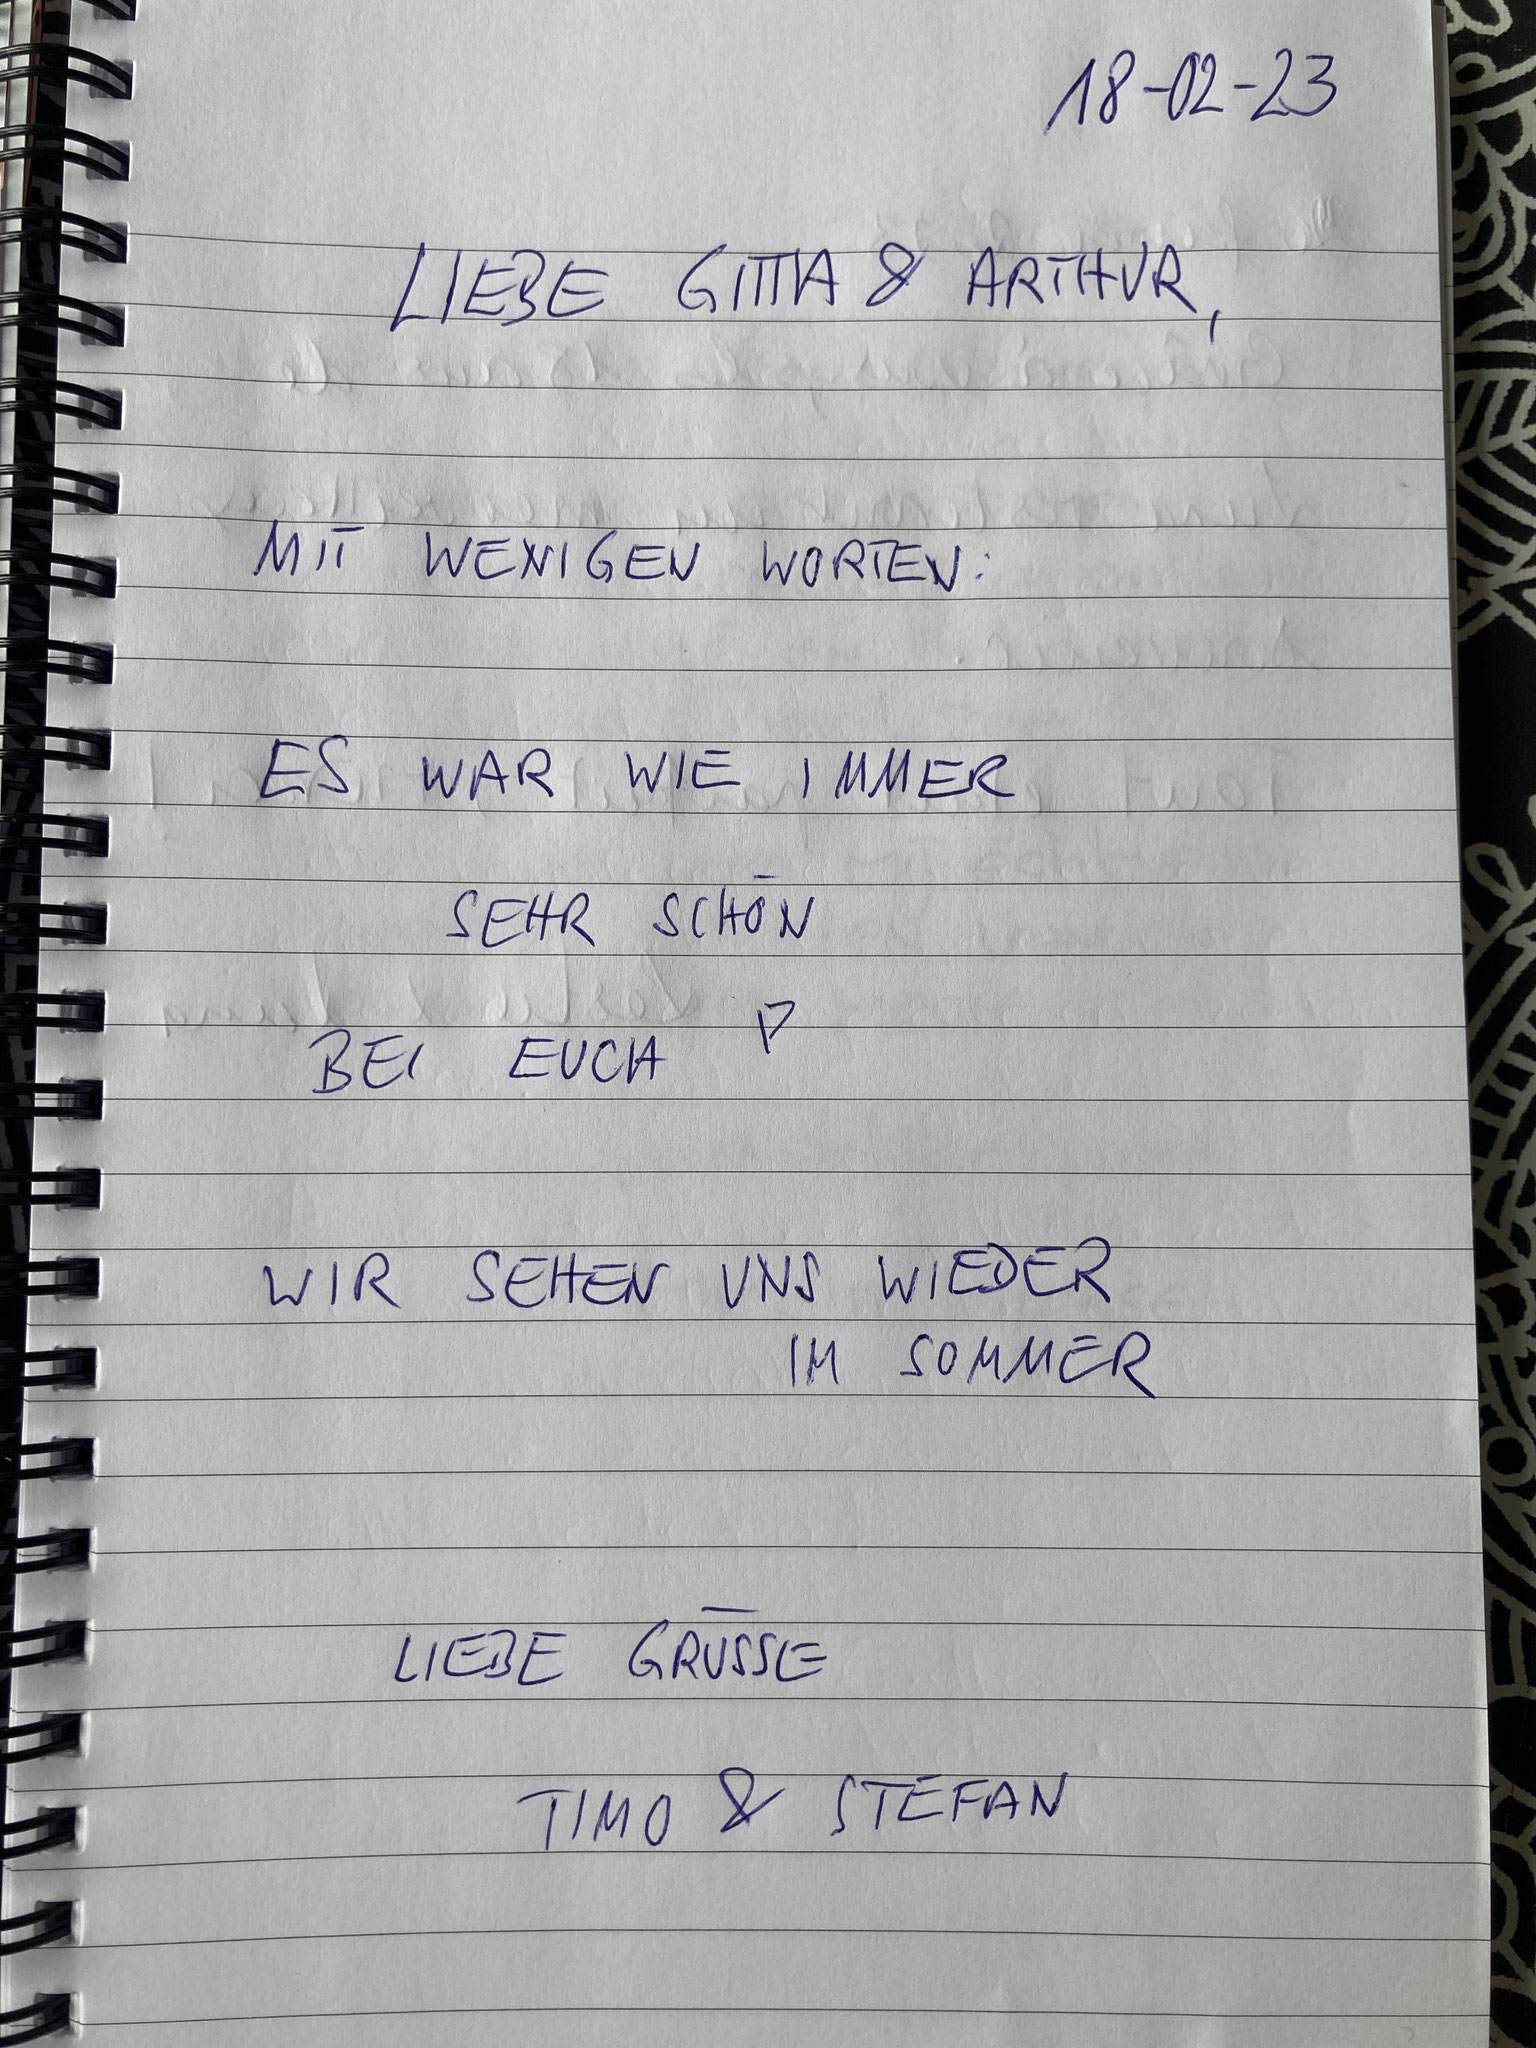 18-02-23
LIEBE GITTA & ARTHUR,
MIT WENIGEN WORTEN:
ES WAR WIE IMMER
SEHR SCHÖN
BEI EUCH !
WIR SEHEN UNS WIEDER
IM SOMMER
LIEBE GRÜSSE
TIMO & STEFAN